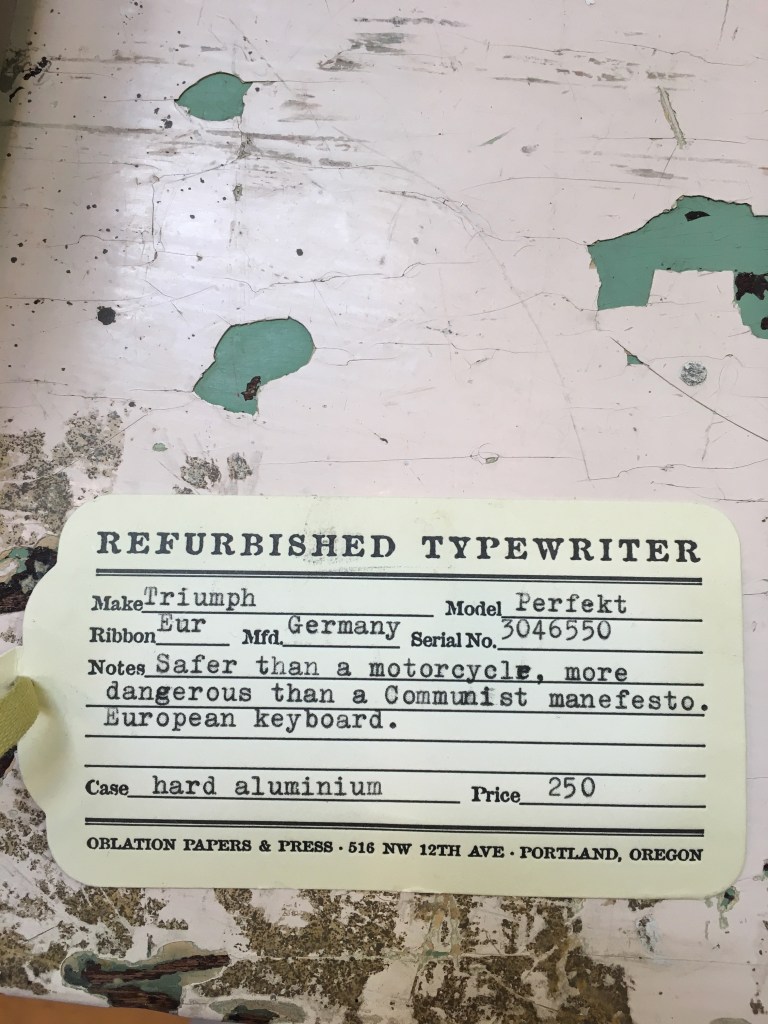 REFURBISHED TYPEWRITER
Make Triumph Model Perfekt
Ribbon Eur Mfd. Germany Serial No. 3046550
Notes Safer than a motorcycle, more
dangerous than a Communist manefesto.
European keyboard.
Case hard aluminium Price 250
OBLATION PAPERS & PRESS · 516 NW 12TH AVE · PORTLAND, OREGON